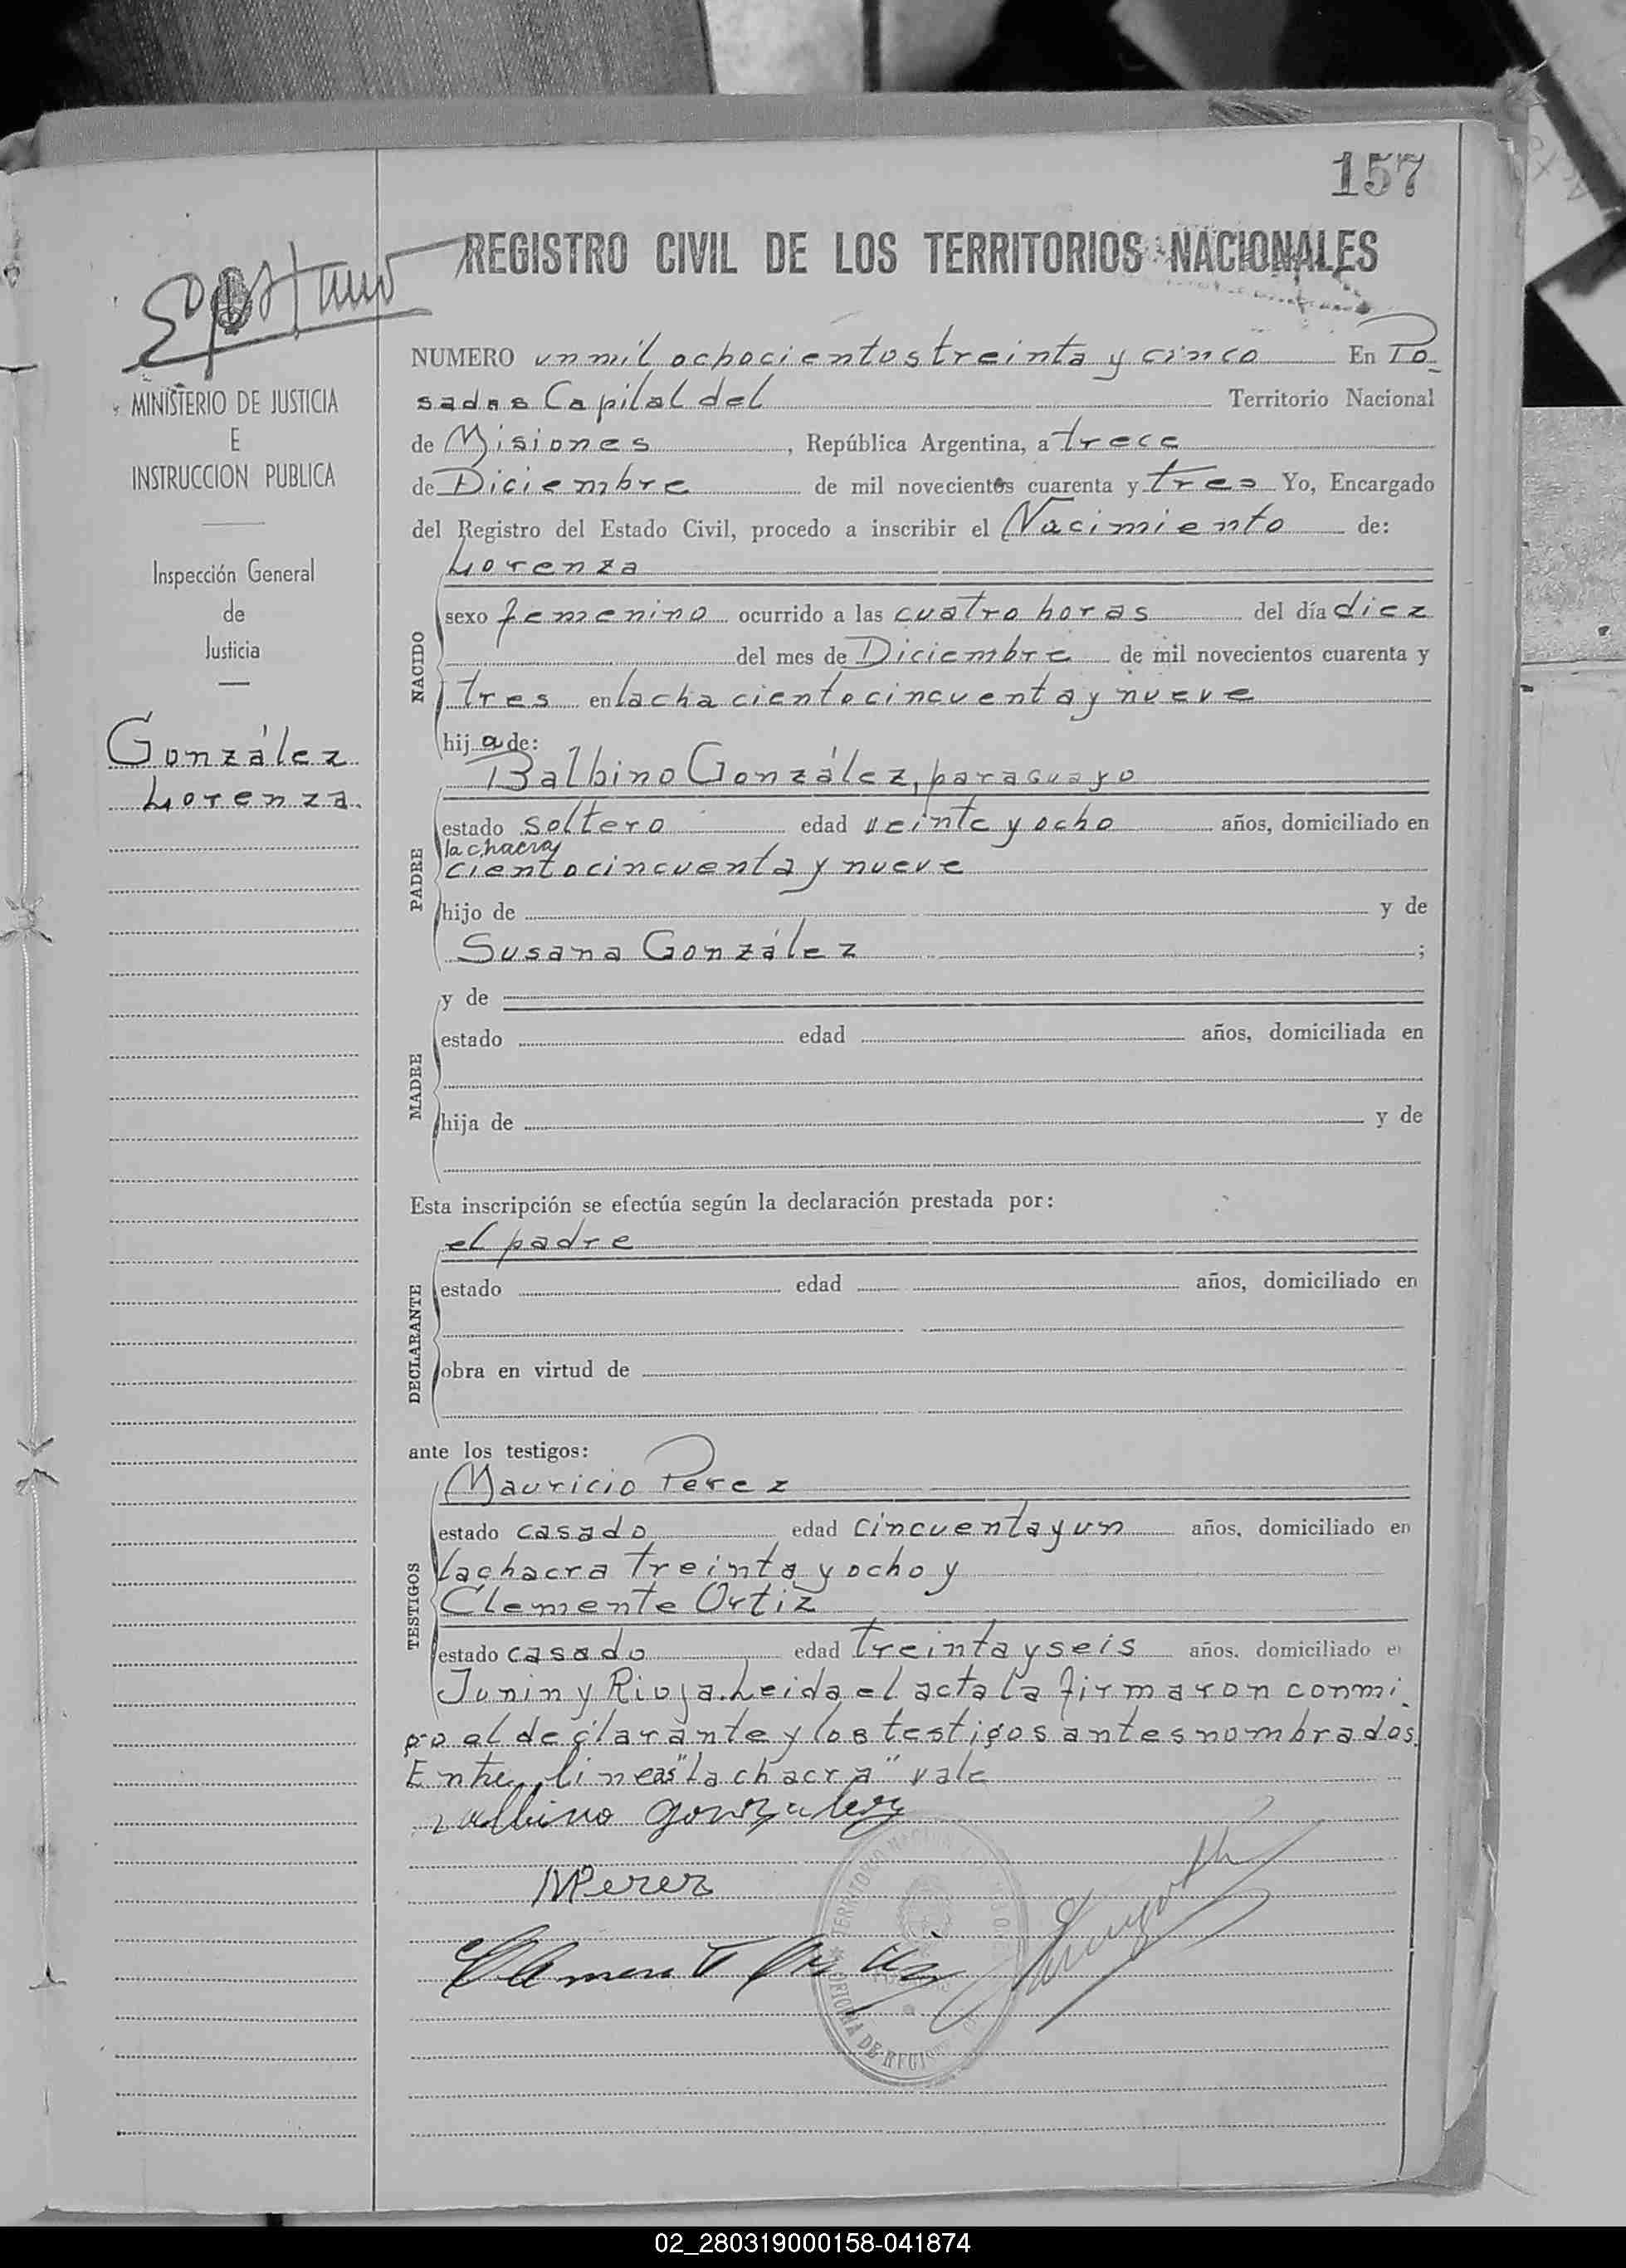 157
REGISTRO CIVIL DE LOS TERRITORIOS NACIONALES
MINISTERIO DE JUSTICIA
E
INSTRUCCION PUBLICA
Inspección General
de
Justicia
González
Lorenza
NUMERO un mil ochocientos treinta y cinco En Po
sadas Capital del Territorio Nacional
de Misiones, República Argentina, a trece
de Diciembre de mil novecientos cuarenta y tres Yo, Encargado
del Registro del Estado Civil, procedo a inscribir el Nacimiento de:
Lorenza
NACIDO
sexo femenino ocurrido a las cuatro horas del día diez
del mes de Diciembre de mil novecientos cuarenta y
tres en la cha ciento cincuenta y nueve
hija de:
Balbino González, paraguayo
PADRE
estado soltero edad veinte y ocho años, domiciliado en
la chacra
ciento cincuenta y nueve
hijo de y de
Susana González ;
MADRE
y de
estado edad años, domiciliada en
hija de y de
Esta inscripción se efectúa según la declaración prestada por:
el padre
DECLARANTE
estado edad años, domiciliado en
obra en virtud de
ante los testigos:
Mauricio Perez
TESTIGOS
estado casado edad cincuenta y un años, domiciliado en
la chacra treinta y ocho y
Clemente Ortiz
estado casado edad treinta y seis años, domiciliado e
Junin y Rioja. Leida el acta la firmaron conmi
go el declarante y los testigos antes nombrados.
Entre lineas "la chacra" vale
Balbino gonzalez
MPerez
Clemente Ortiz
TERRITORIO NACIONAL
OFICINA DE REGI
02_280319000158-041874